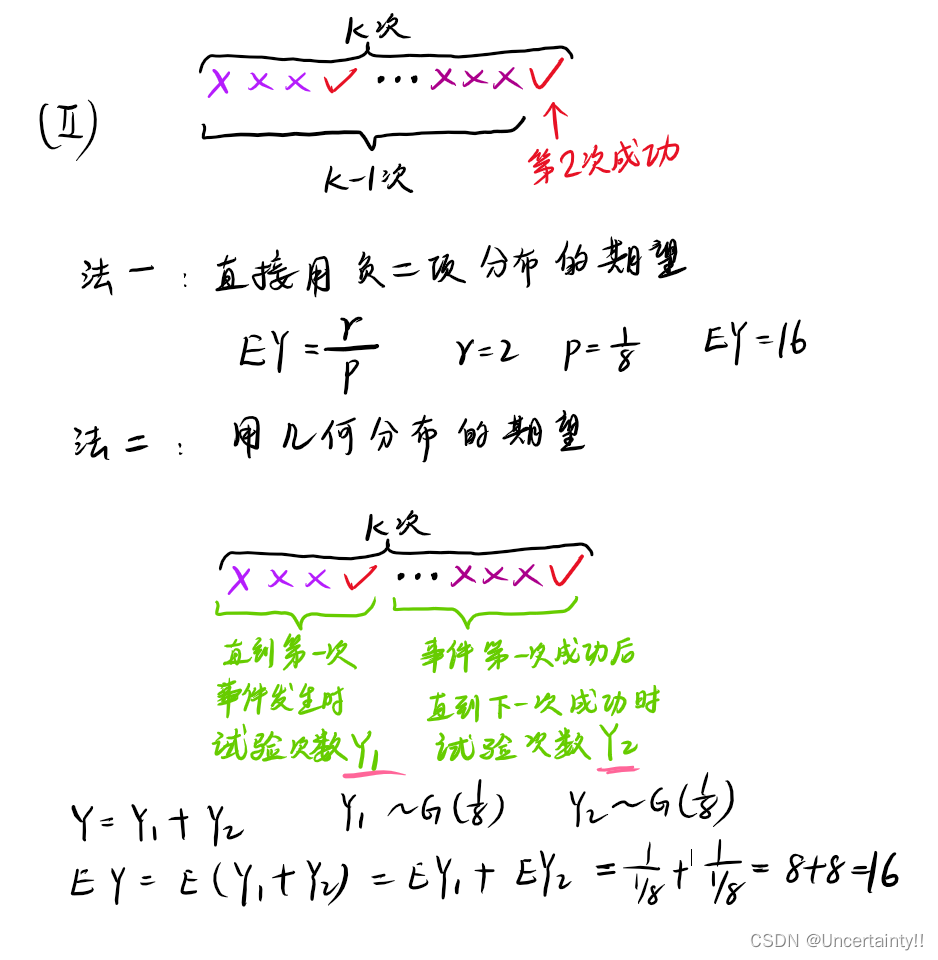 k次
(Ⅱ) X X X ✓ ••• X X X ✓
k-1次 第2次成功
法一：直接用负二项分布的期望
EY = r/p r=2 p=1/8 EY=16
法二：用几何分布的期望
k次
X X X ✓ ••• X X X ✓
直到第一次 事件第一次成功后
事件发生时 直到下一次成功时
试验次数Y₁ 试验次数Y₂
Y=Y₁+Y₂ Y₁~G(1/8) Y₂~G(1/8)
EY = E(Y₁+Y₂) = EY₁+EY₂ = 1/(1/8) + 1/(1/8) = 8+8=16
CSDN @Uncertainty!!